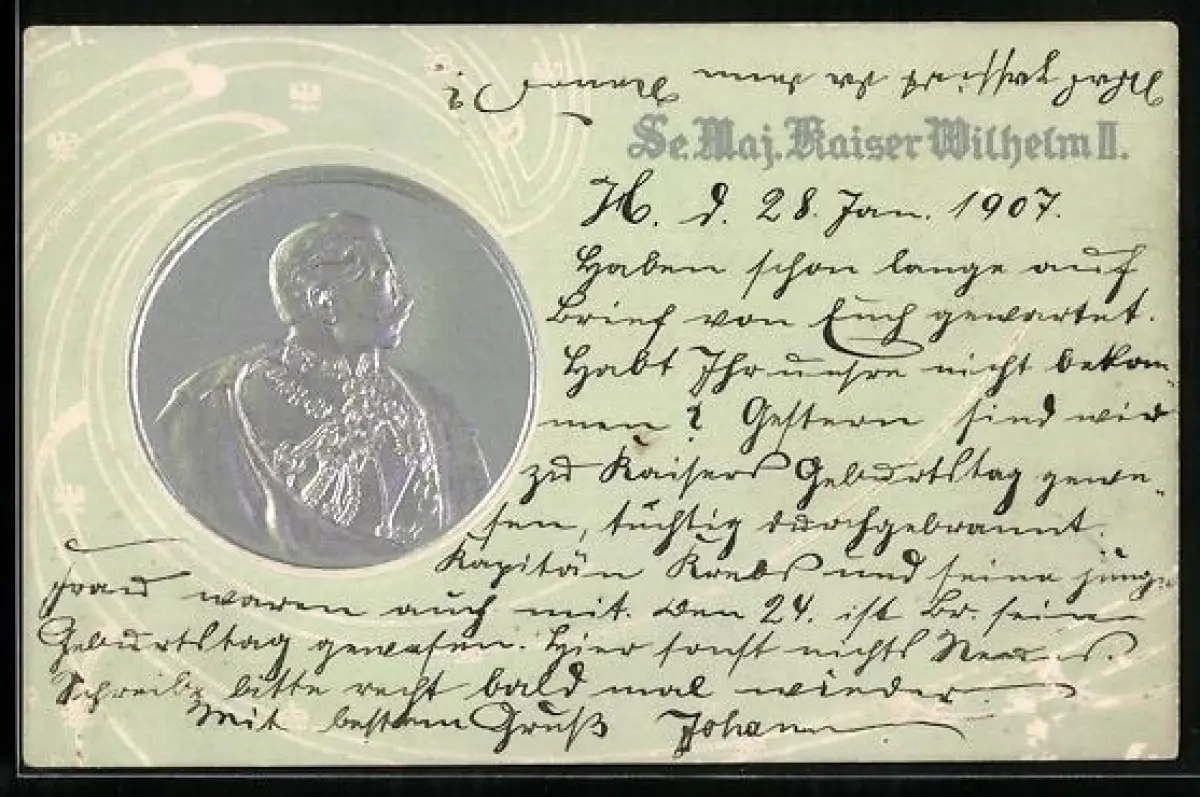 Se. Maj. Kaiser Wilhelm II.
H. d. 28. Jan. 1907.
Haben schon lange auf
Brief von Euch gewartet.
Habt Ihr unsre nicht bekom-
men? Gestern sind wir
zu Kaisers Geburtstag gewe-
sen, tüchtig durchgebrannt.
Kapitän Krebs und seine junge
Frau waren auch mit. Den 24. ist Br. sein
Geburtstag gewesen. Hier sonst nichts Neues.
Schreibt bitte recht bald mal wieder
Mit bestem Gruß Johann